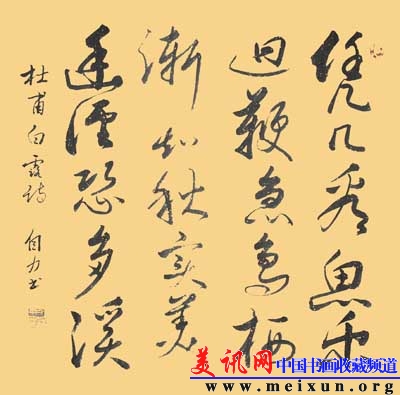 凭几看鱼乐
迴鞭急鸟栖
渐知秋实美
幽径恐多溪
杜甫白露诗 自力书
美讯网 中国书画收藏频道
www.meixun.org